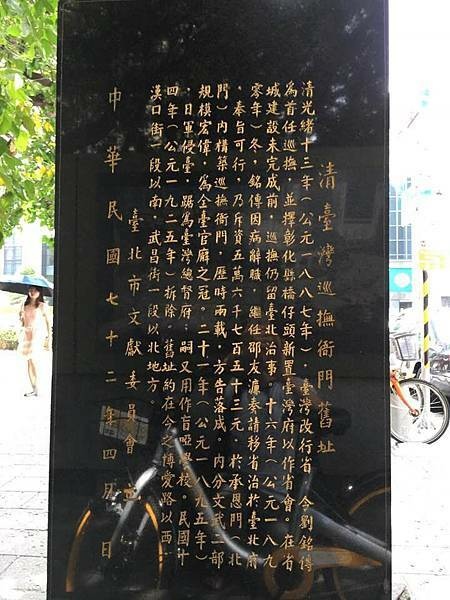 清臺灣巡撫衙門舊址
清光緒十三年(公元一八八七年),臺灣改行省,令劉銘傳
為首任巡撫,並擇彰化縣橋仔頭新置臺灣府以作省會。在省
城建設未完成前,巡撫仍留臺北治事。十六年(公元一八九
零年)冬,銘傳因病辭職,繼任邵友濂奏請移省治於臺北府
,奉旨可行,乃斥資五萬六千七百五十三元,於承恩門(北
門)內構築巡撫衙門,歷時兩載,方告落成。內分文武二部
規模宏偉,為全臺官廨之冠。二十一年(公元一八九五年)
,日軍侵臺,踞為臺灣總督府;嗣又用作盲啞學校。民國十
四年(公元一九二五年)拆除。舊址約在今之博愛路以西
漢口街一段以南,武昌街一段以北地方。
臺北市文獻委員會 立
中華民國七十二年四月 日